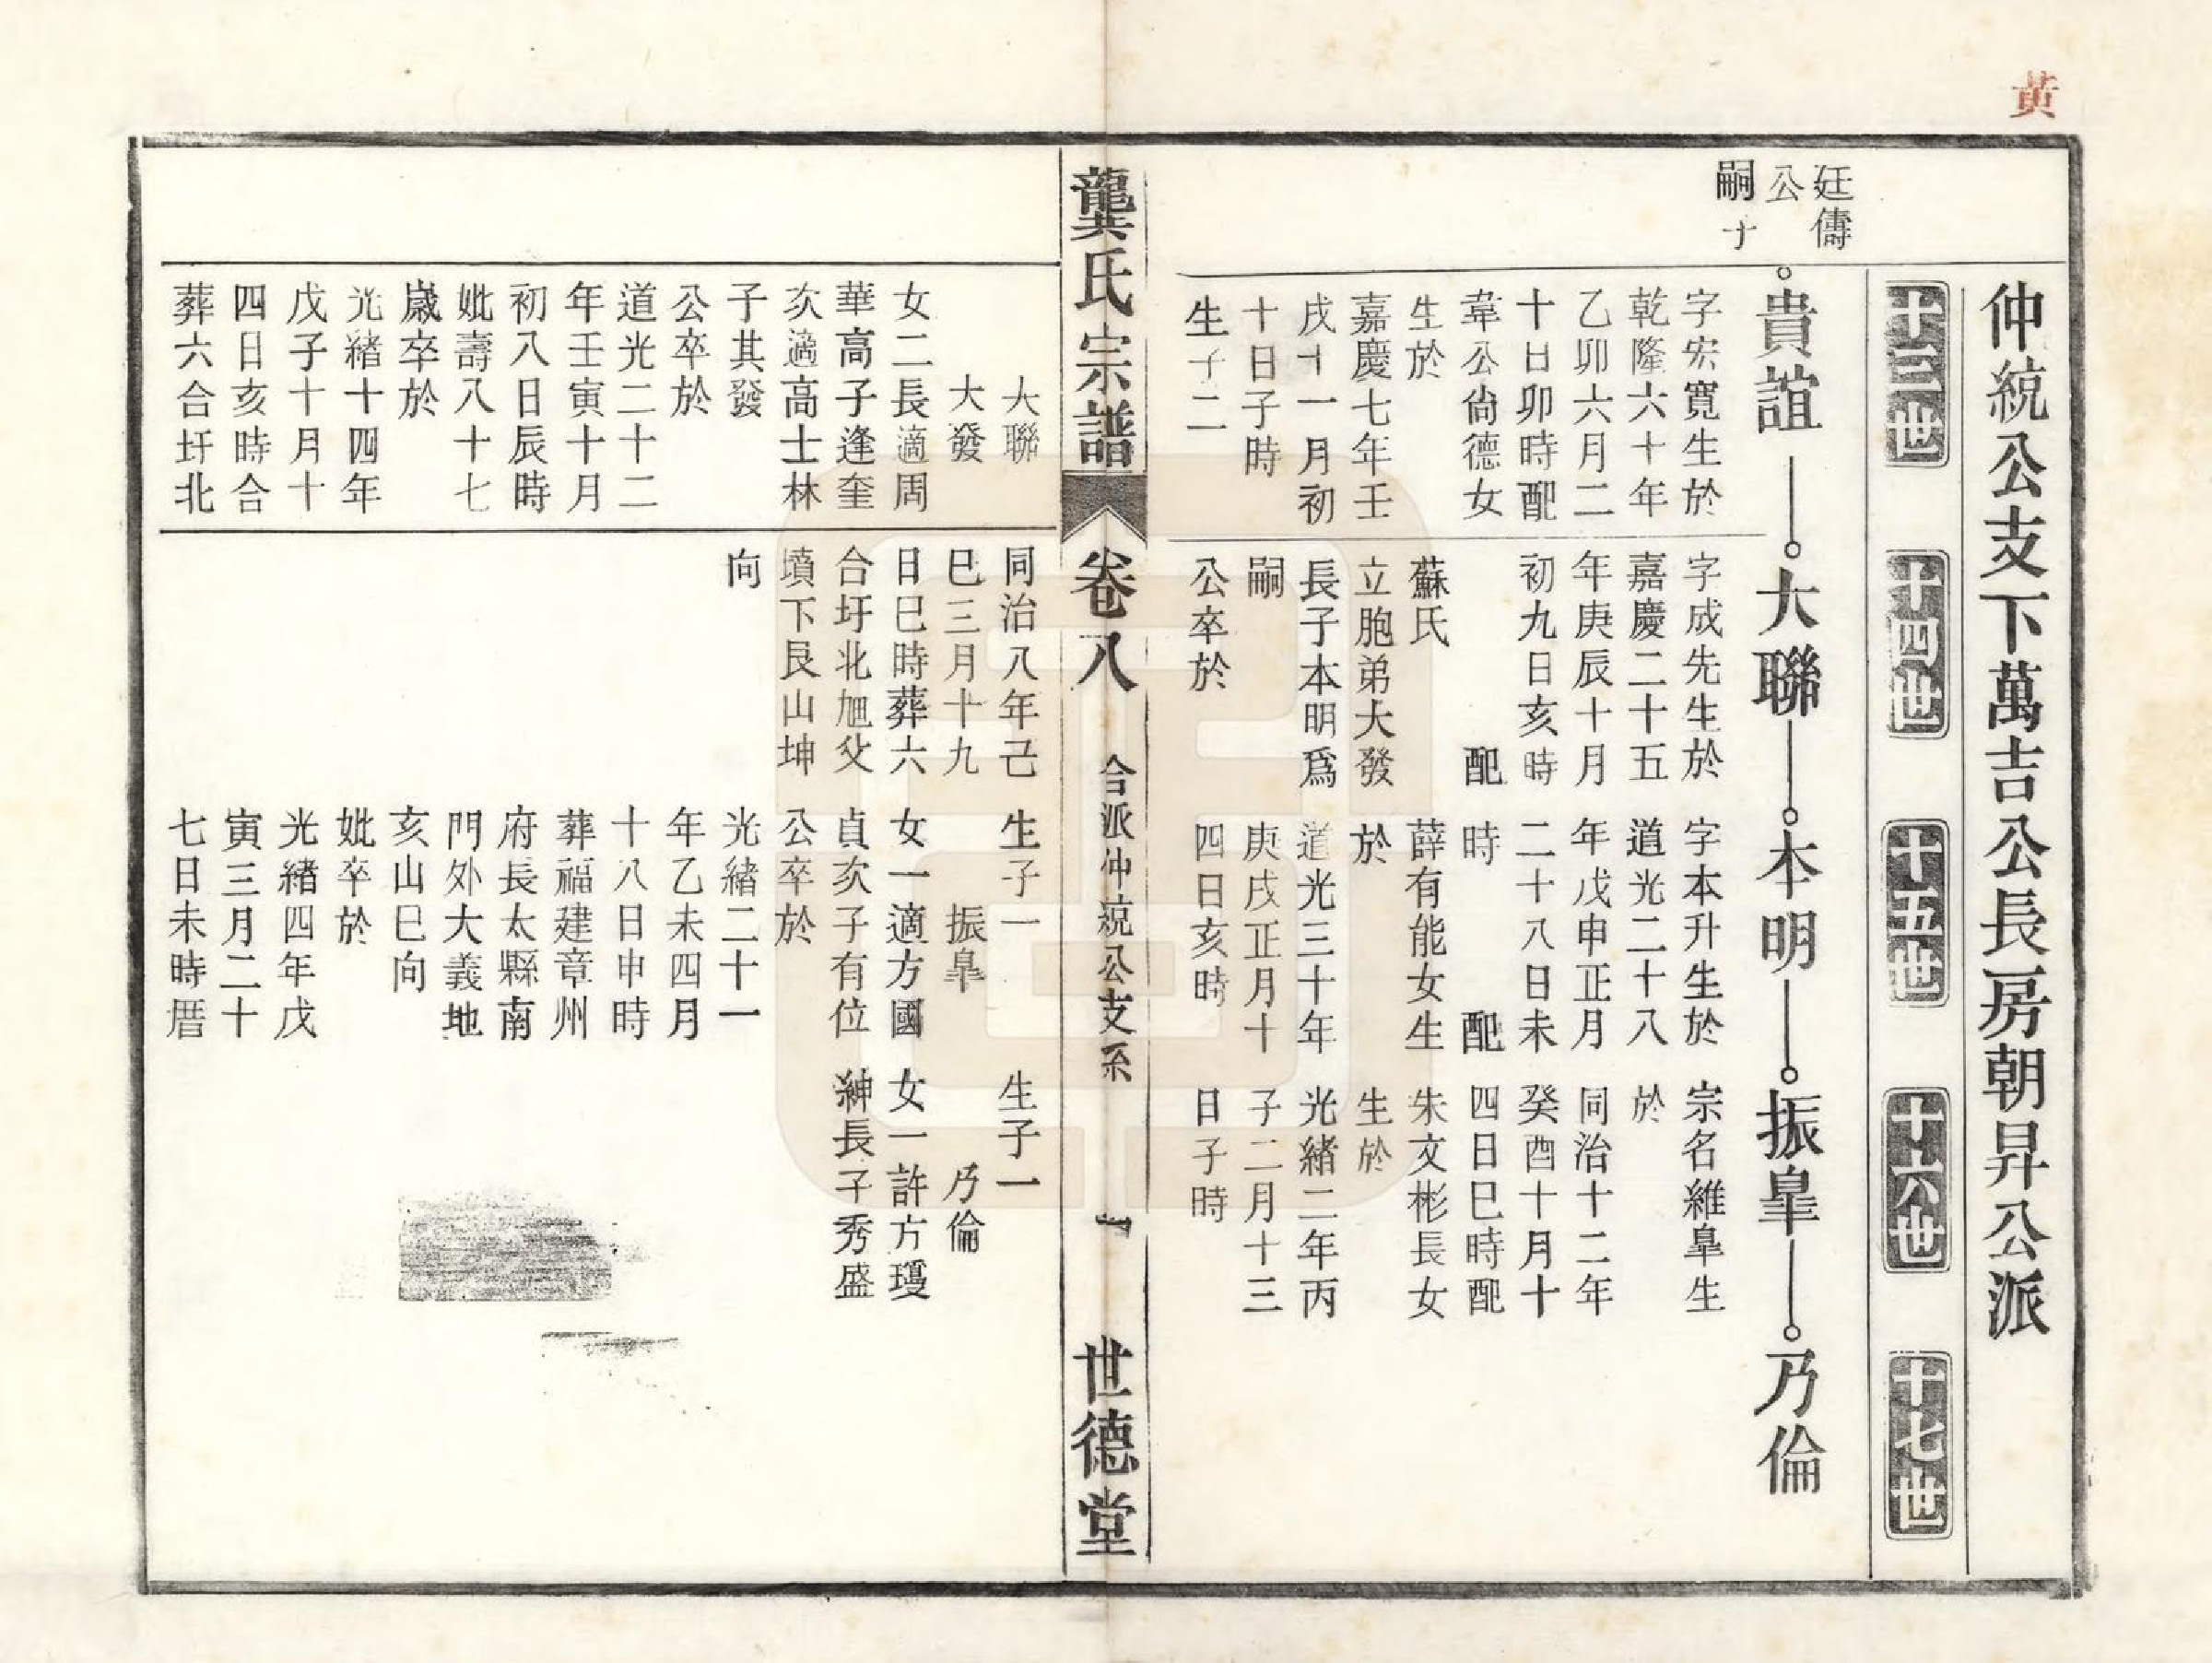 黃
仲統公支下萬吉公長房朝昇公派
十三世
十四世
十五世
十六世
十七世
廷儔
公
嗣子
貴誼
大聯
本明
振臯
乃倫
字宏寬生於
乾隆六十年
乙卯六月二
十日卯時配
韋公尙德女
生於
嘉慶七年壬
戌十一月初
十日子時
生子二
字成先生於
嘉慶二十五
年庚辰十月
初九日亥時
配
蘇氏
立胞弟大發
長子本明爲
嗣
公卒於
字本升生於
道光二十八
年戊申正月
二十八日未
時 配
薛有能女生
於
道光三十年
庚戌正月十
四日亥時
宗名維臯生
於
同治十二年
癸酉十月十
四日巳時配
朱文彬長女
生於
光緒二年丙
子二月十三
日子時
龔氏宗譜
卷八
合派仲統公支系
世德堂
大聯
大發
女二長適周
華高子逢奎
次適高士林
子其發
公卒於
道光二十二
年壬寅十月
初八日辰時
妣壽八十七
歲卒於
光緒十四年
戊子十月十
四日亥時合
葬六合圩北
同治八年己
巳三月十九
日巳時葬六
合圩北旭父
墳下艮山坤
向
生子一
振臯
女一適方國
貞次子有位
公卒於
光緒二十一
年乙未四月
十八日申時
葬福建章州
府長太縣南
門外大義地
亥山巳向
妣卒於
光緒四年戊
寅三月二十
七日未時厝
生子一
乃倫
女一許方瑴
紳長子秀盛